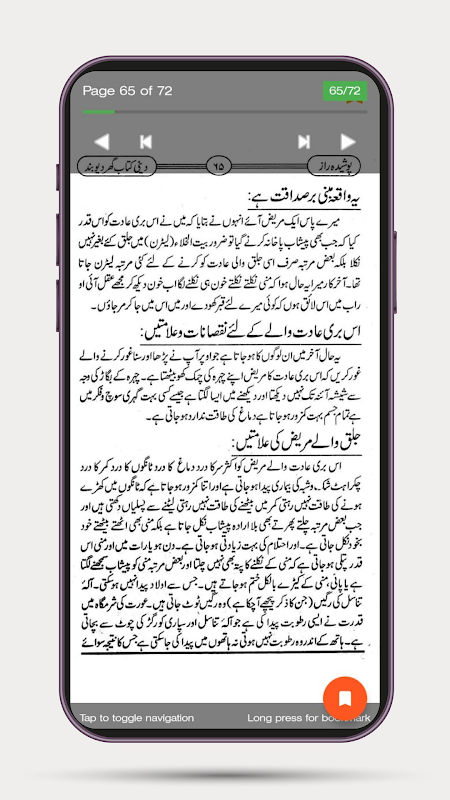 Page 65 of 72
65/72
پوشیدہ راز
۶۵
دینی کتاب گھر دیوبند
یہ واقعہ مبنی بر صداقت ہے:
میرے پاس ایک مریض آئے انہوں نے بتایا کہ میں نے اس بری عادت کو اس قدر
کیا کہ جب بھی پیشاب پاخانہ کرنے گیا تو ضرور بیت الخلاء (لیٹرن) میں جلق کئے بغیر نہیں
نکلا بلکہ بعض مرتبہ صرف اسی جلق والی عادت کو کرنے کے لئے کئی مرتبہ لیٹرن جاتا
تھا۔ آخر کار میرا یہ حال ہوا کہ منی نکلتے نکلتے خون ہی نکلنے لگا اب خون دیکھ کر مجھے عقل آئی او
راب میں اس لائق ہوں کہ کوئی میرے لئے قبر کھودے اور میں اس میں جا کر مر جاؤں۔
اس بری عادت والے کے لئے نقصانات و علامتیں:
یہ حال آخر میں ان لوگوں کا ہو جاتا ہے جو اوپر آپ نے پڑھا اور سنا غور کرنے والے
غور کریں کہ اس بری عادت کا مریض اپنے چہرہ کی چمک کھو بیٹھتا ہے۔ چہرہ کے بگاڑ کی وجہ
سے شیشہ آئنہ تک نہیں دیکھتا اور دیکھنے میں ایسا لگتا ہے جیسے کسی بہت گہری سوچ و فکر میں
ہے تمام جسم بہت کمزور ہو جاتا ہے دماغ کی طاقت ندارد ہو جاتی ہے۔
جلق والے مریض کی علامتیں:
اس بری عادت والے مریض کو اکثر سر کا درد دماغ کا درد ٹانگوں کا درد کمر کا درد
چکراہٹ شک و شبہ کی بیماری پیدا ہو جاتی ہے اور اتنا کمزور ہو جاتا ہے کہ ٹانگوں میں کھڑے
ہونے کی طاقت نہیں رہتی کمر میں بیٹھنے کی طاقت نہیں رہتی لیٹنے سے پسلیاں دکھتی ہیں اور
جب بعض مرتبہ چلتے پھرتے بھی بلا ارادہ پیشاب نکل جاتا ہے بلکہ منی بھی اٹھتے بیٹھتے خود
بخود نکل جاتی ہے۔ اور احتلام کی بہت زیادتی ہو جاتی ہے۔ دن ہو یا رات میں اور منی اس
قدر پتلی ہو جاتی ہے کہ منی کے نکلنے کا پتہ بھی نہیں چلتا اور بعض مرتبہ منی کو پیشاب سمجھنے لگتا
ہے یا پانی، منی کے کیڑے بالکل ختم ہو جاتے ہیں۔ جس سے اولاد پیدا نہیں ہو سکتی۔ آلۂ
تناسل کی رگیں (جن کا ذکر پیچھے آ چکا ہے) وہ رگیں ٹوٹ جاتی ہیں۔ عورت کی شرمگاہ میں
قدرت نے ایسی رطوبت پیدا کی ہے جو آلۂ تناسل اور سپاری کو رگڑ کی چوٹ سے بچاتی
ہے۔ ہاتھ کے اندر وہ رطوبت نہیں ہوتی نہ ہاتھوں میں پیدا کی جا سکتی ہے جس کا نتیجہ سوائے
Tap to toggle navigation
Long press for bookmark